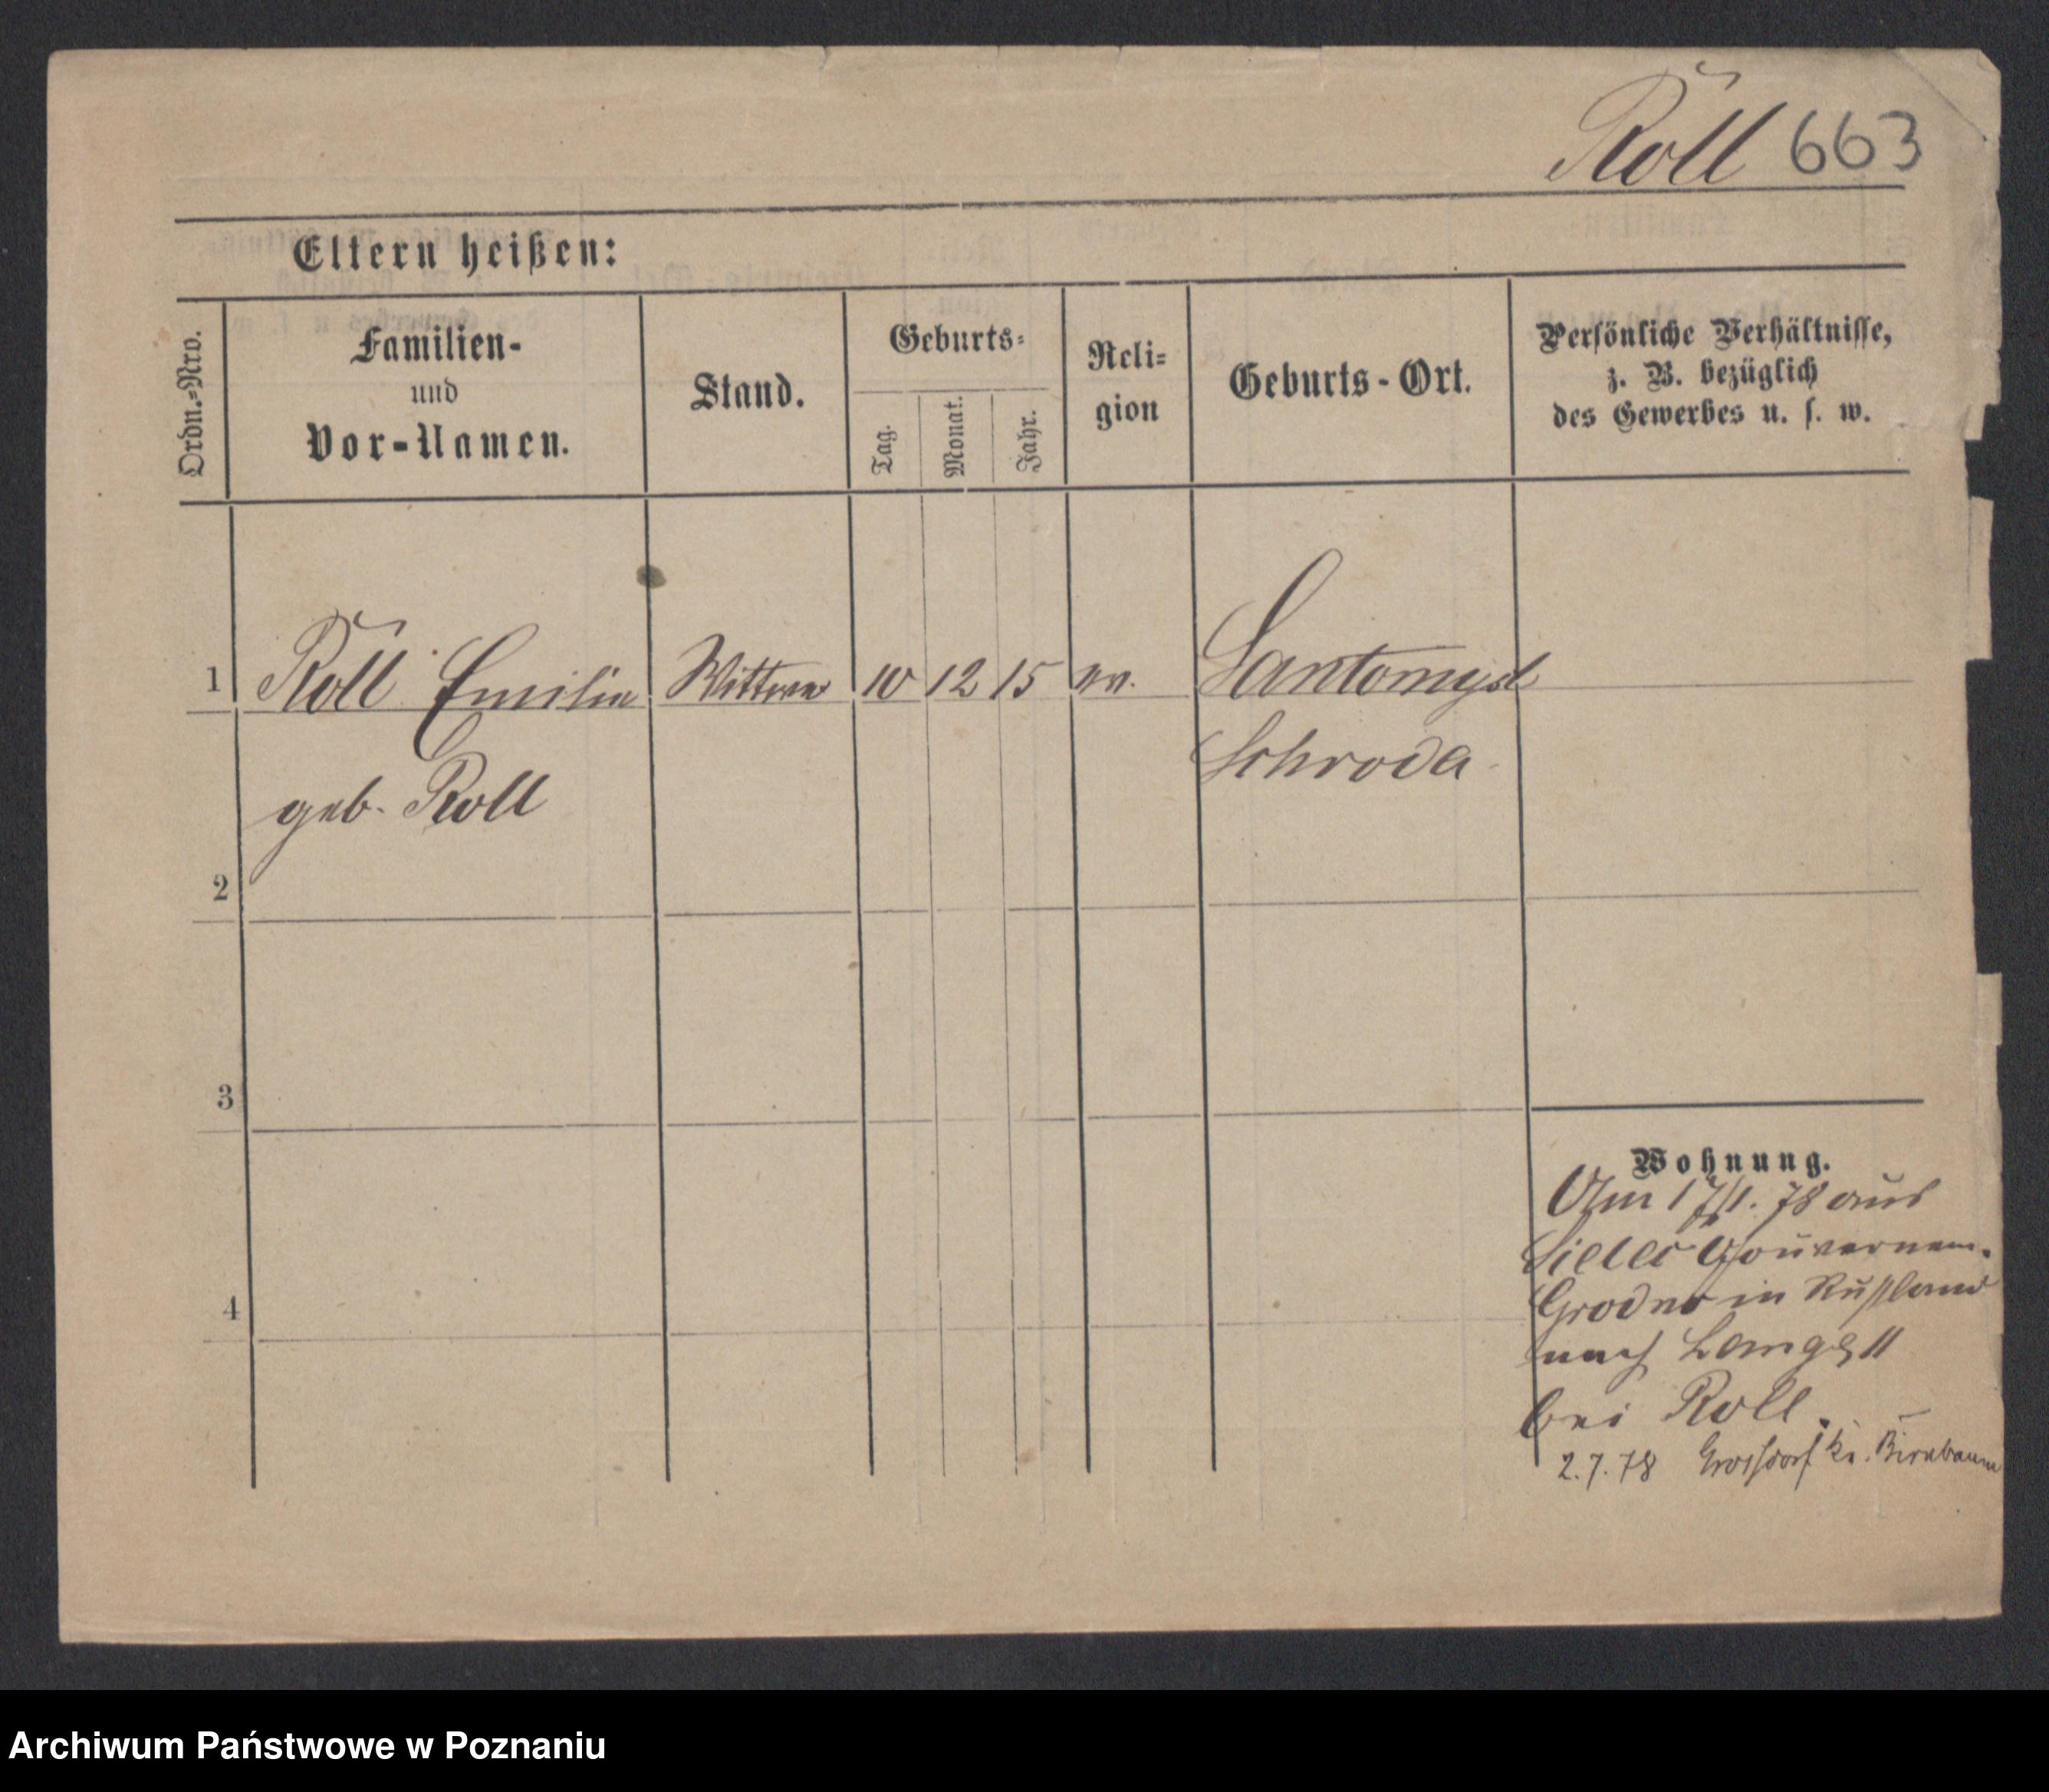 Roll 663
Eltern heißen:
Ordn.-Nro.
Familien-
und
Vor-Namen.
Stand.
Geburts-
Tag.
Monat.
Jahr.
Reli-
gion
Geburts-Ort.
Persönliche Verhältnisse,
z. B. bezüglich
des Gewerbes u. s. w.
1 Roll Emilie Wittwe 10 12 15 ev. Santomysl
Schroda
geb. Roll
2
3
4
Wohnung.
Am 17/1. 78 aus
Gouvernem.
Grodno in Rußland
nach Langg 11
bei Roll.
2.7.78 Grossdorf Kr. Birnbaum
Archiwum Państwowe w Poznaniu